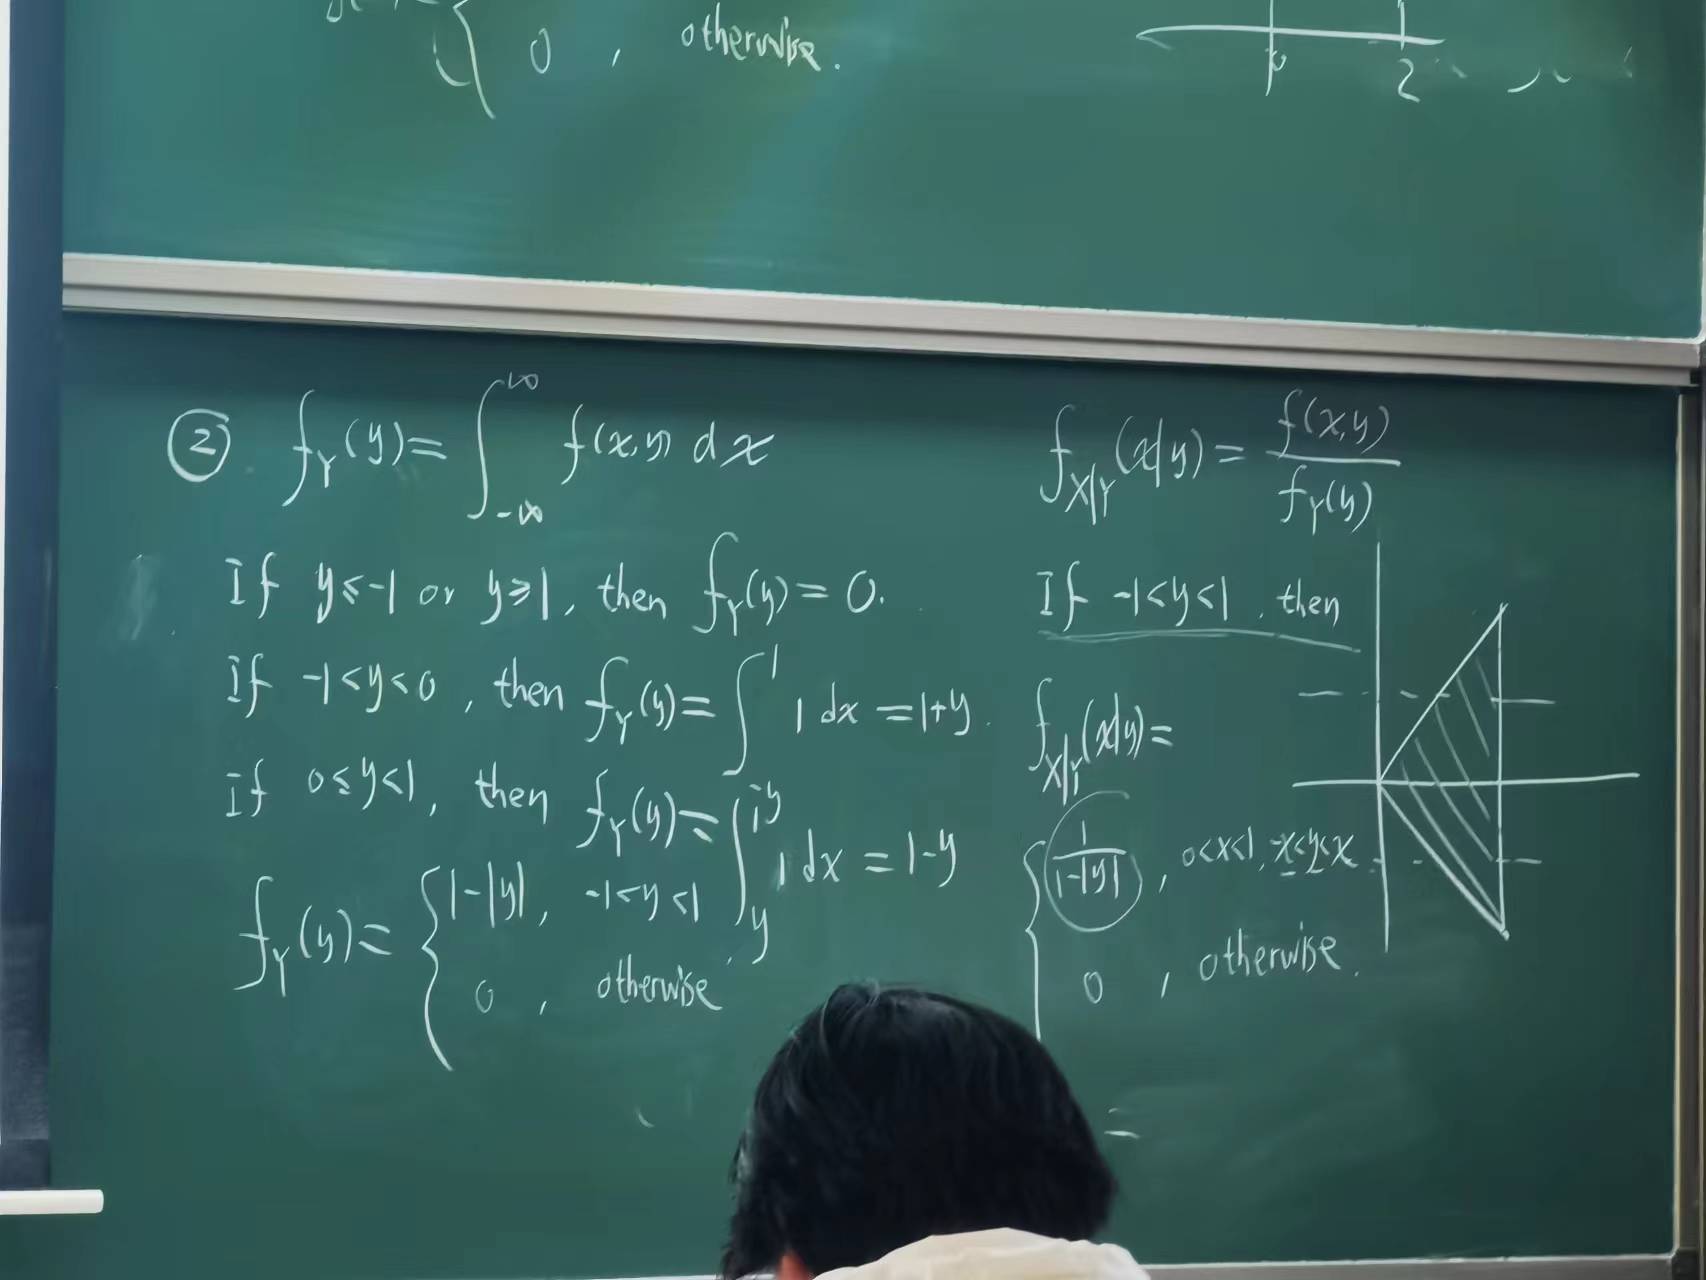 0 , otherwise.
2
② f_Y(y) = ∫_{-∞}^{+∞} f(x,y) dx
If y ≤ -1 or y ≥ 1, then f_Y(y) = 0.
If -1 < y < 0, then f_Y(y) = ∫_{-y}^{1} 1 dx = 1+y.
If 0 ≤ y < 1, then f_Y(y) = ∫_{y}^{1} 1 dx = 1-y
f_Y(y) = { 1-|y|, -1 < y < 1
0 , otherwise.
f_{X|Y}(x|y) = f(x,y) / f_Y(y)
If -1 < y < 1, then
f_{X|Y}(x|y) =
{ 1/(1-|y|) , 0<x<1, -x<y<x
0 , otherwise.
=